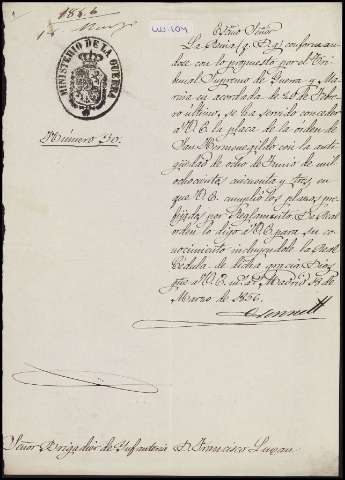 1856
14 Marzo
MINISTERIO DE LA GUERRA
Número 30.
Exmo Señor
La Reina (q. D. g.) conforman-
dose con lo propuesto por el Tri-
bunal Supremo de Guerra y Ma-
rina en acordada de 20 de Febre-
ro último, se ha servido conceder
a V.E. la placa de la orden de
San Hermenegildo con la anti-
güedad de ocho de Junio de mil
ochocientos cincuenta y tres, en
que V.E. cumplió los plazos pre-
fijados por Reglamento. De Real
orden lo digo a V.E. para su co-
nocimiento incluyendole la Real
Cedula de dicha gracia. Dios
gue a V.E. m. a. Madrid 14 de
Marzo de 1856.
O'Donnell
Señor Brigadier de Infanteria D. Francisco